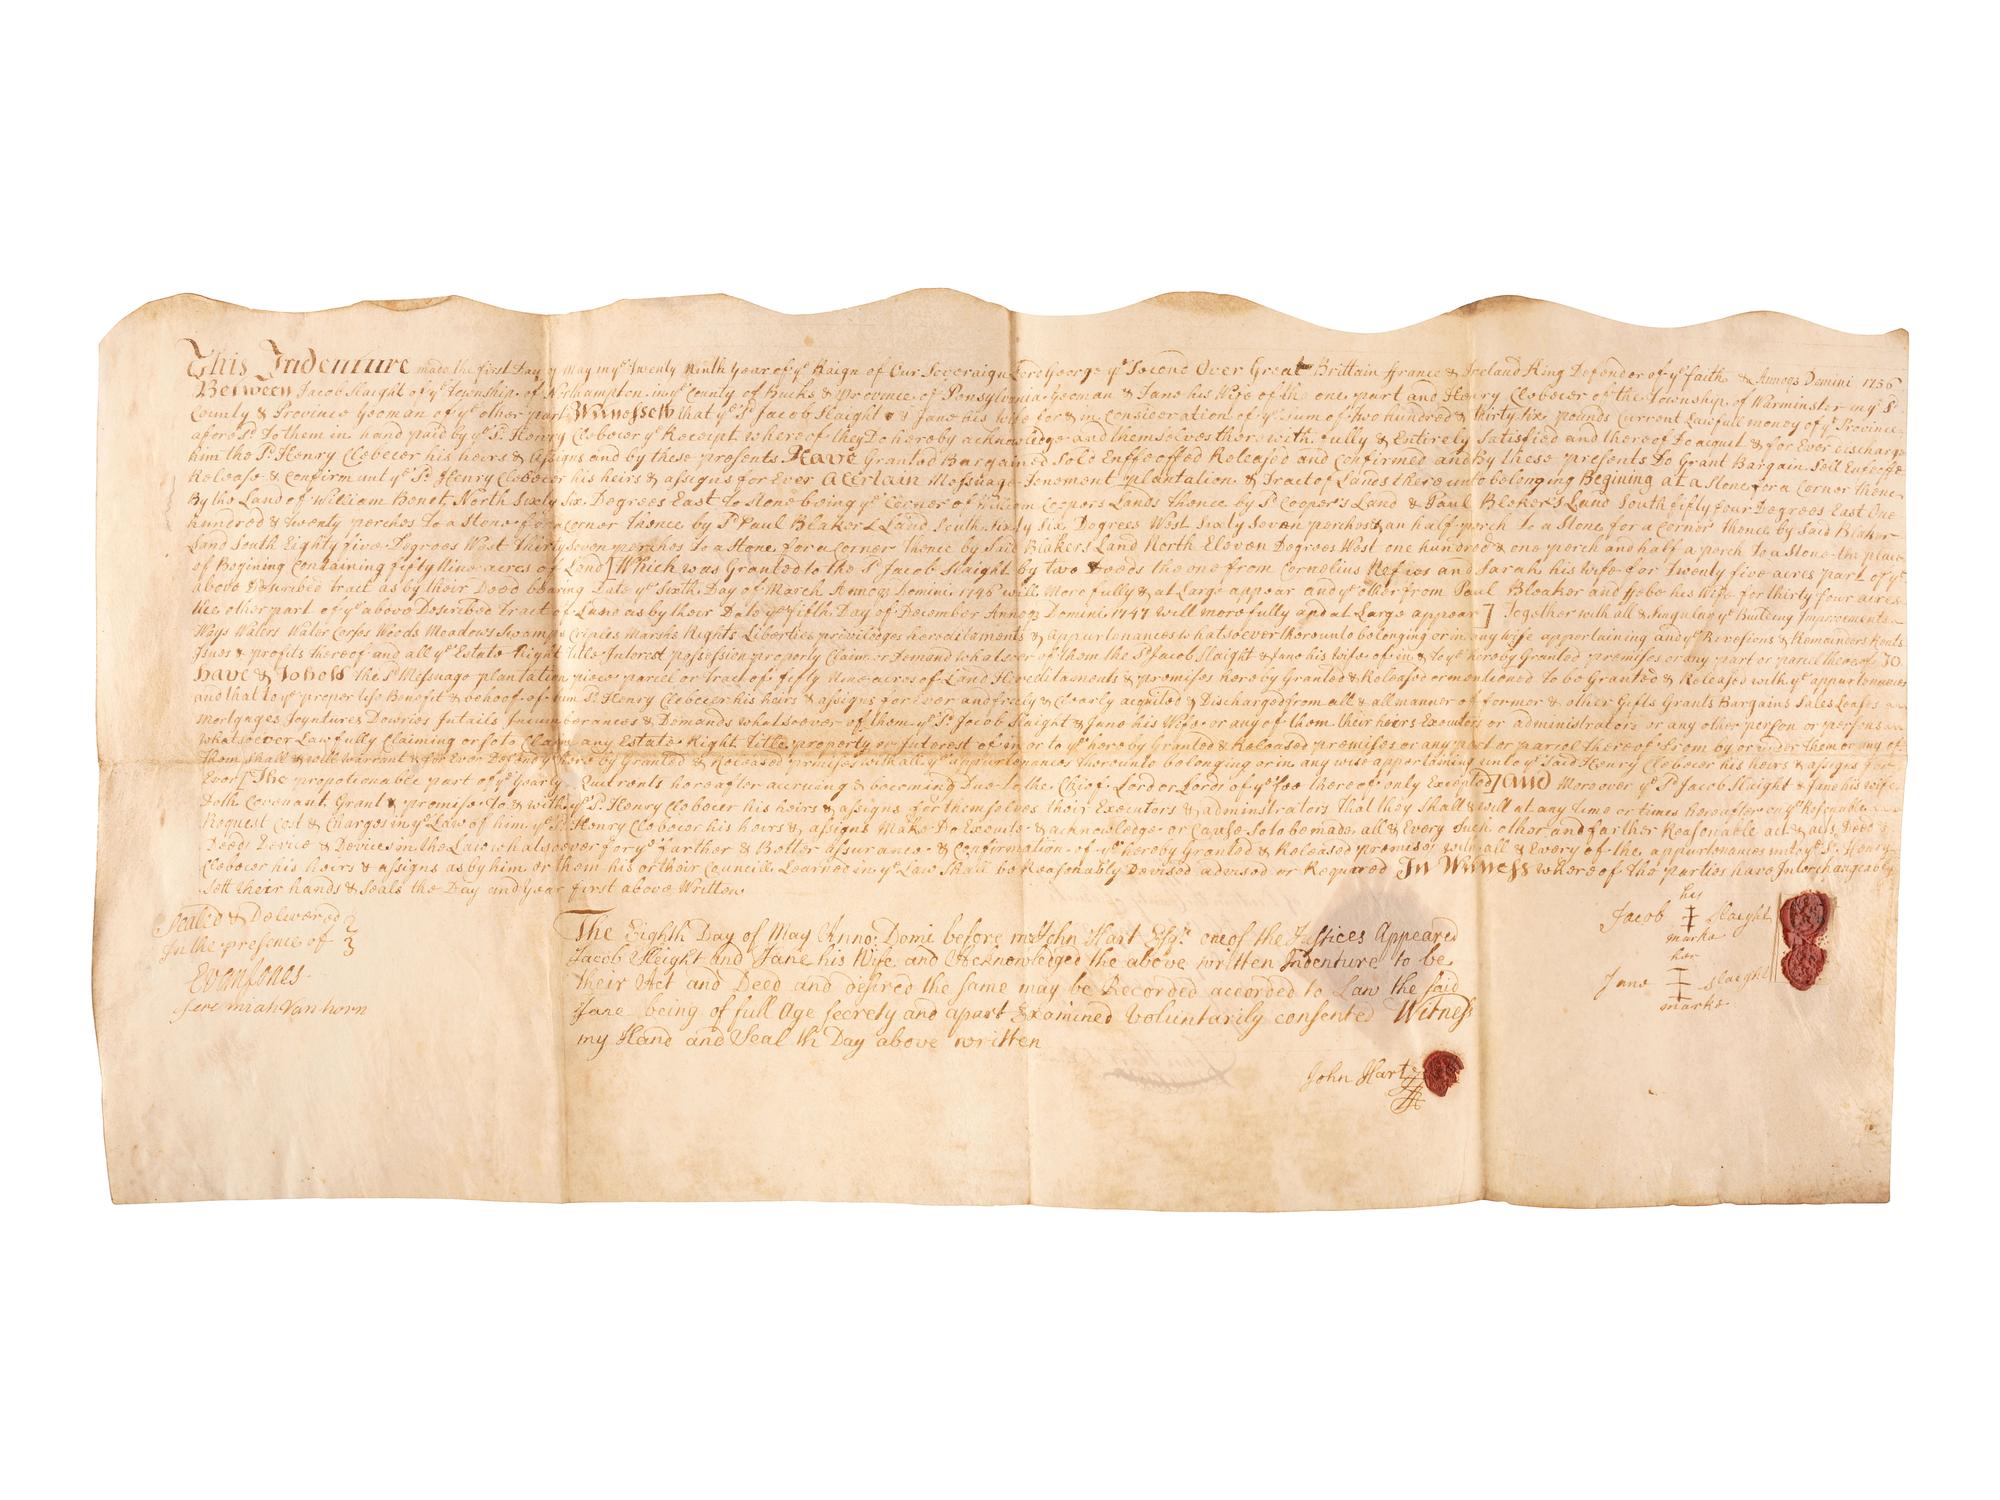 This Indenture made the first Day of May in ye Twenty Ninth Year of ye Raign of Our Soveraign Lord George ye Second Over Great Brittain france & Ireland King Defender of ye faith & Annoqs Domini 1756
Between Jacob Slaight of ye Township of Northampton in ye County of Bucks & Province of Pensylvania Yeoman & Jane his Wife of the one part and Henry Clebocer of the Township of Warminster in ye Sd
County & Province Yeoman of ye other part Witnesseth that ye Sd Jacob Slaight & Jane his wife for & in Consideration of ye Sum of two hundred & thirty six pounds Current Lawfull money of ye Province
afore Sd To them in hand paid by ye Sd Henry Clebocer ye Receipt whereof they Do hereby acknowledge and themselves therewith fully & Entirely Satisfied and thereof Do aquit & for Ever discharge
him the Sd Henry Clebocer his heirs & assigns and by these presents Have Granted Bargained Sold Enffeoffed Released and Confirmed and By these presents Do Grant Bargain Sell Enfeoffe
Release & Confirm unt ye Sd Henry Clebocer his heirs & assigns for Ever A Certain Messuage Tenement plantation & Tract of Lands thereunto belonging Begining at a Stone for a Corner thence
By the Land of William Bonet North Sixty Six Degrees East To Stone being ye Corner of William Coopers Lands thence by Sd Cooper's Land & Paul Blaker's Land South fifty four Degrees East One
hundred & twenty perches To a Stone for a Corner thence by Sd Paul Blakers Land South Sixty Six Degrees West Sixty Seven perches & an half perch To a Stone for a Corner thence by Said Blaker
Land South Eighty five Degrees West Thirty Seven perches To a Stone for a Corner thence by Said Blakers Land North Eleven Degrees West one hundred & one perch and half a perch To a Stone the place
of Begining Containing fifty Nine acres of Land [Which was Granted to the Sd Jacob Slaight by two Deeds the one from Cornelius and Sarah his Wife for Twenty five acres part of ye
above Described tract as by their Deed bearing Date ye Sixth Day of March Annoqs Domini 1746 will More fully & at Large appear and ye other from Paul Bloaker and his Wife for thirty four acres
the other part of ye above Described Tract of Land as by their Date ye fifth Day of December Annoqs Domini 1747 will more fully and at Large appear] Together with all & Singular ye Building Improvements
Ways Waters Water Corses Woods Meadows Swamps Criples Marshs Rights Liberties priviledges hereditaments & appurtenances whatsoever thereunto belonging or in any wise appertaining and ye Revesions & Remainders Rents
Issues & profits thereof and all ye Estate Right Title Interest possession property Claim or Demand whatsoever of them the Sd Jacob Slaight & Jane his wife of in & To ye hereby Granted premises or any part or parcel thereof To
have & To hold the Sd Messuage plantation piece parcel or Tract of fifty Nine acres of Land Hereditaments & promises hereby Granted & Released or mentioned To be Granted & Released with ye appurtenances
and that to ye proper Use Benefit & behoof of him Sd Henry Clebocer his heirs & assigns for Ever and freely & Clearly acquited & Discharged from all & all manner of former & other Gifts Grants Bargains Sales Leases
Mortgages Joyntures Dowries Intails Incumberances & Demands whatsoever of them ye Sd Jacob Slaight & Jane his Wife or any of them their heirs Executors or administrators or any other person or persons
whatsoever Lawfully Claiming or so to Claim any Estate Right Title property or Interest of in or to ye hereby Granted & Released premises or any part or parcel thereof from by or under them or any of
them Shall & will warrant & for Ever Defend ye hereby Granted & Released premises with all ye appurtenances thereunto belonging or in any wise appertaining unto ye Said Henry Clebocer his heirs & assigns for
Ever [The propotionable part of ye Yearly Quitrents hereafter accruing & becoming Due to the Chief Lord or Lords of ye fee thereof only Excepted] And Moreover ye Sd Jacob Slaight & Jane his wife
Doth Covenant Grant & promise To & with ye Sd Henry Clebocer his heirs & assigns for themselves their Executors & adminstrators That they Shall & will at any Time or times hereafter on ye Resonable
Request Cost & Charges in ye Law of him ye Sd Henry Clebocer his heirs & assigns Make Do Execute & acknowledge or Cause So to be made all & Every Such other and farther Reasonable act & acts Deed &
Deeds Device & Devices in the Law whatsoever for ye farther & Better assurance & Confirmation of ye hereby Granted & Released premises with all & Every of the appurtenances unto ye Sd Henry
Clebocer his heirs & assigns as by him or them his or their Councill Learned in ye Law Shall be Reasonably Devised advised or Required In Witness whereof the parties have Interchangeably
Sett their hands & Seals the Day and Year first above Written
Sealed & Delivered
In the presence of
Evan Jones
Jeremiah Vanhorn
The Eighth Day of May Anno Domi before me John Hart Esqr. one of the Justices Appeared
Jacob Sleight and Jane his Wife and Acknowledged the above written Indenture to be
their Act and Deed and desired the same may be Recorded accorded to Law the said
Jane being of full Age secretly and apart Examined Voluntarily consented Witness
my Hand and Seal th Day above written
John Hart
his
Jacob Slaight
marke
her
Jane Slaight
marke